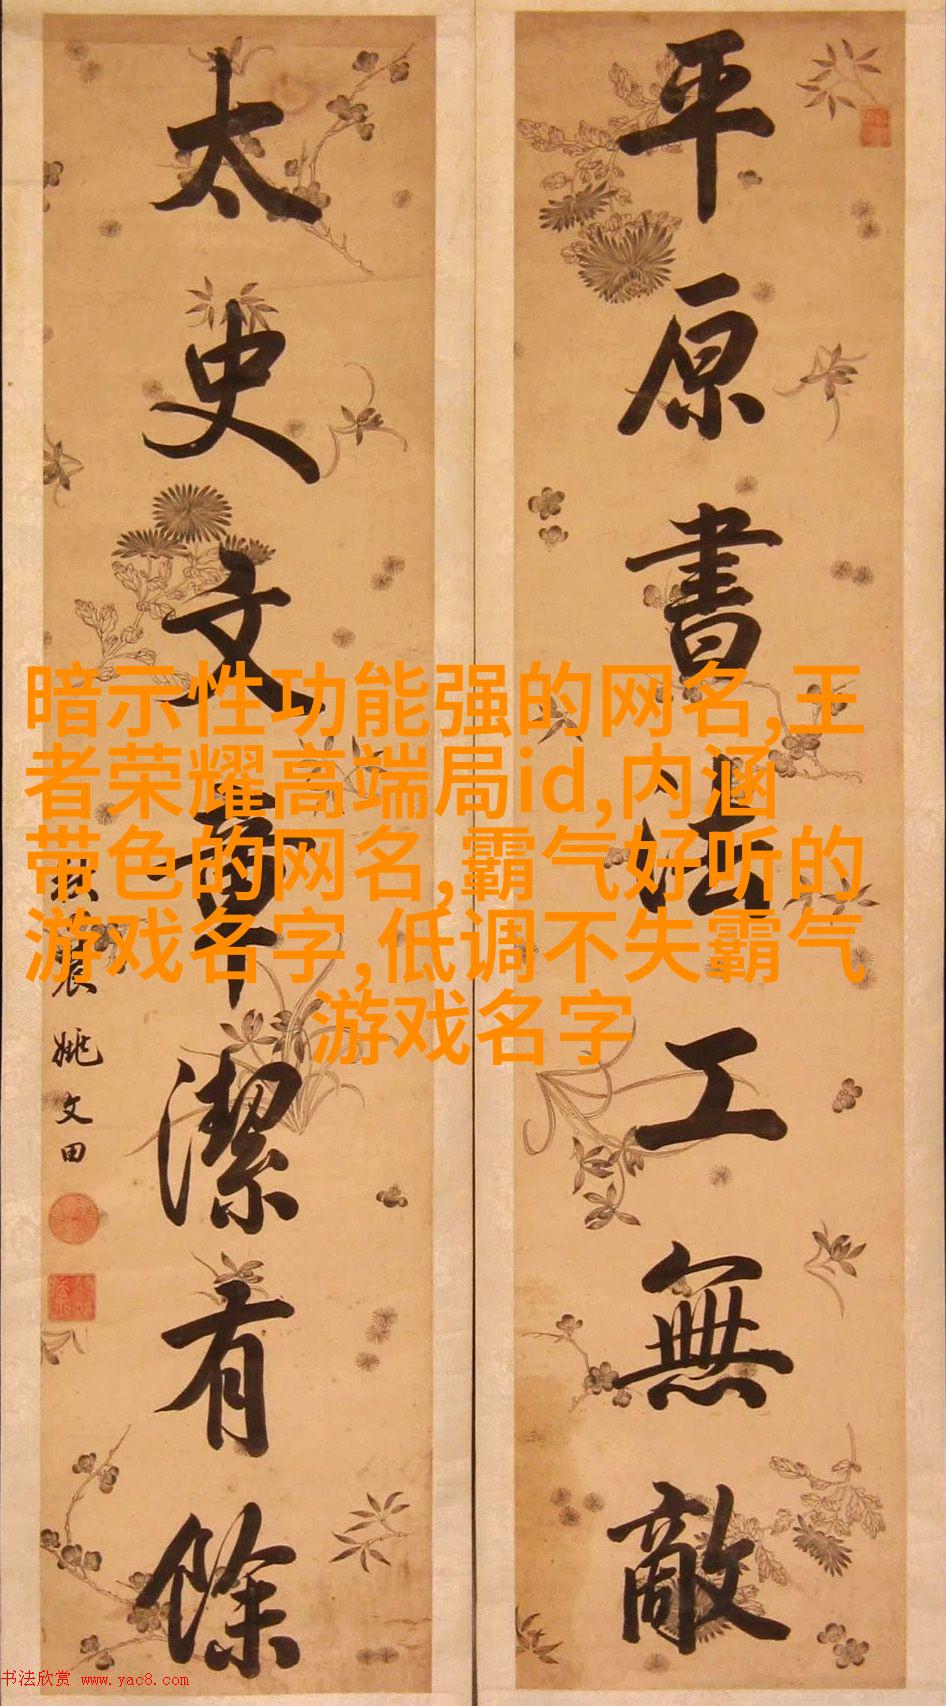 平原書法工無敵
太史文章潔有餘
姚文田
暗示性功能强的网名,王
者荣耀高端局id,内涵
带色的网名,霸气好听的
游戏名字,低调不失霸气
游戏名字
书法欣赏 www.yac8.com